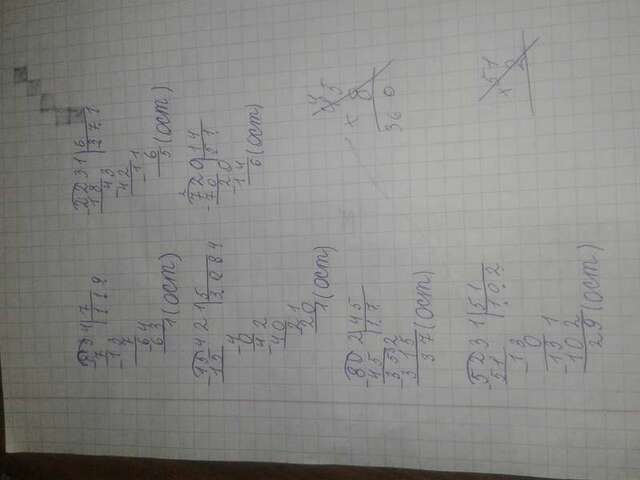 834 7
7 119
-13
7
-64
63
1 (ост)
2231 6
18 371
-43
42
-11
6
5 (ост)
15421 5
15 3084
-4
0
-42
40
21
20
1 (ост)
2
720 14
-70 51
-20
14
6 (ост)
802 45
-45 17
-352
315
37 (ост)
4
45
× 8
360
5231 51
-51 102
-13
0
-131
102
29 (ост)
51
× 2